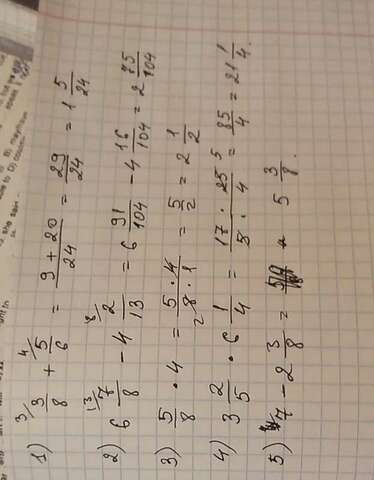 1) 3/ 3/8 + 4/ 5/6 = (9 + 20)/24 = 29/24 = 1 5/24
2) 6 13/ 7/8 - 4 8/ 2/13 = 6 91/104 - 4 16/104 = 2 75/104
3) 5/8 · 4 = (5 · 4)/(8 · 1) 2 = 5/2 = 2 1/2
4) 3 2/5 · 6 1/4 = (17 · 25 5)/(5 · 4) = 85/4 = 21 1/4.
5) 7 - 2 3/8 = 5 3/8.